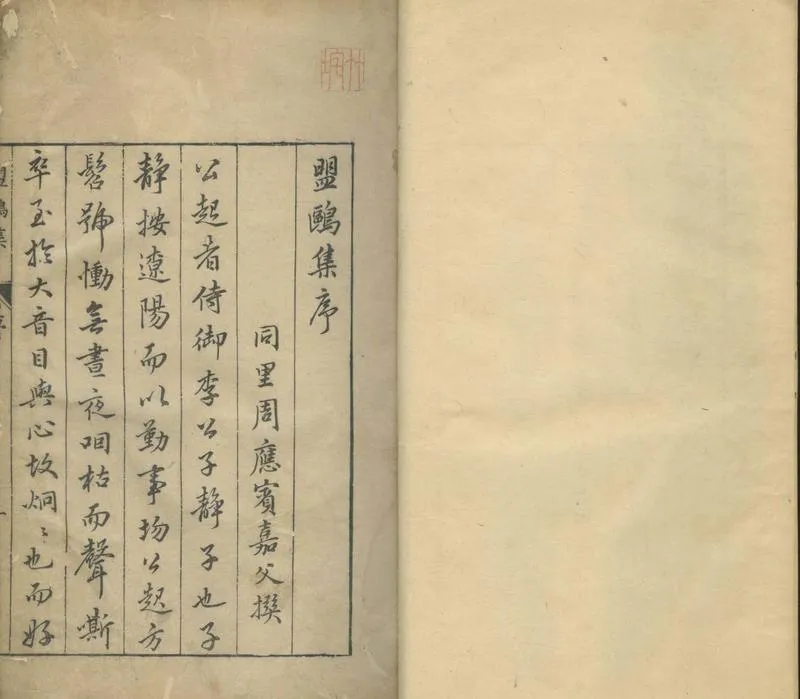 盟鷗集序
同里周應賓嘉父撰
公起者侍御李公子靜子也子
靜按遼陽而以勤事歾公起方
髫號慟無晝夜咽枯而聲嘶
卒至於大音目與心故炯〻也而好
盟鷗集
序
一